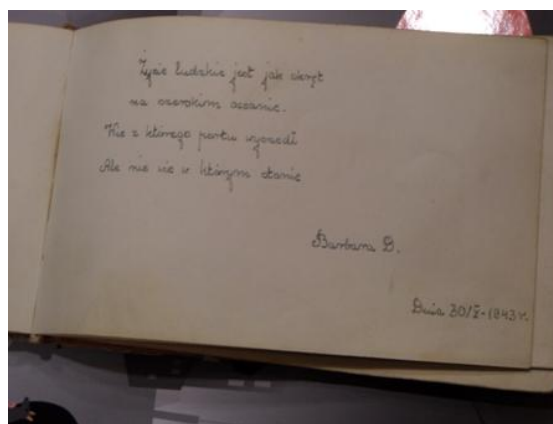 Życie ludzkie jest jak okręt
na szerokim oceanie.
Wie z którego portu wyszedł
Ale nie wie w którym stanie
Barbara D.
Dnia 30/X-1943 r.